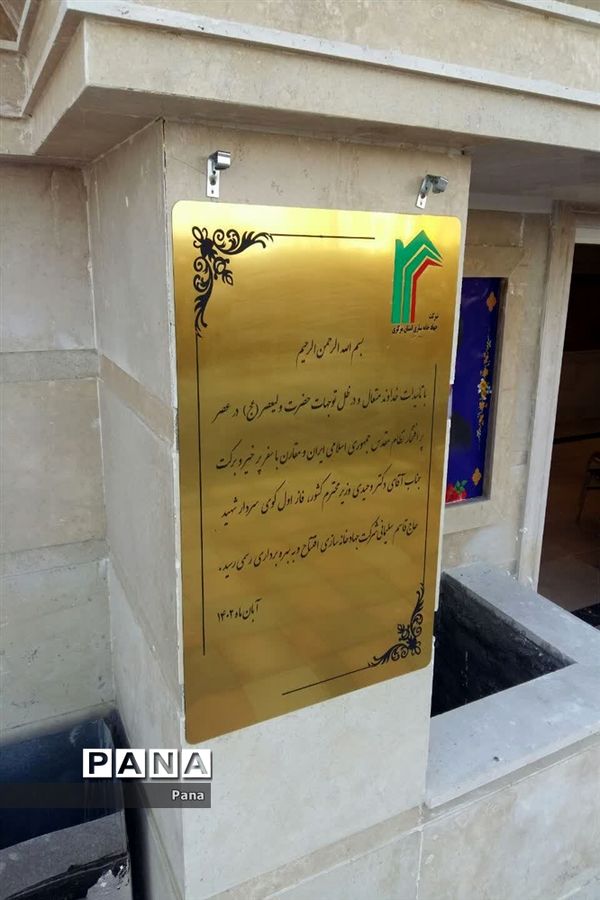 شرکت
جهاد خانه سازی استان مرکزی
بسم الله الرحمن الرحیم
با تاییدات خداوند متعال و در ظل توجهات حضرت ولیعصر (عج) در عصر
پر افتخار نظام مقدس جمهوری اسلامی ایران و مقارن با سفر پر خیر و برکت
جناب آقای دکتر وحیدی وزیر محترم کشور، فاز اول کوی سردار شهید
حاج قاسم سلیمانی شرکت جهاد خانه سازی افتتاح و به بهره برداری رسمی رسید.
آبان ماه ۱۴۰۲
PANA
Pana